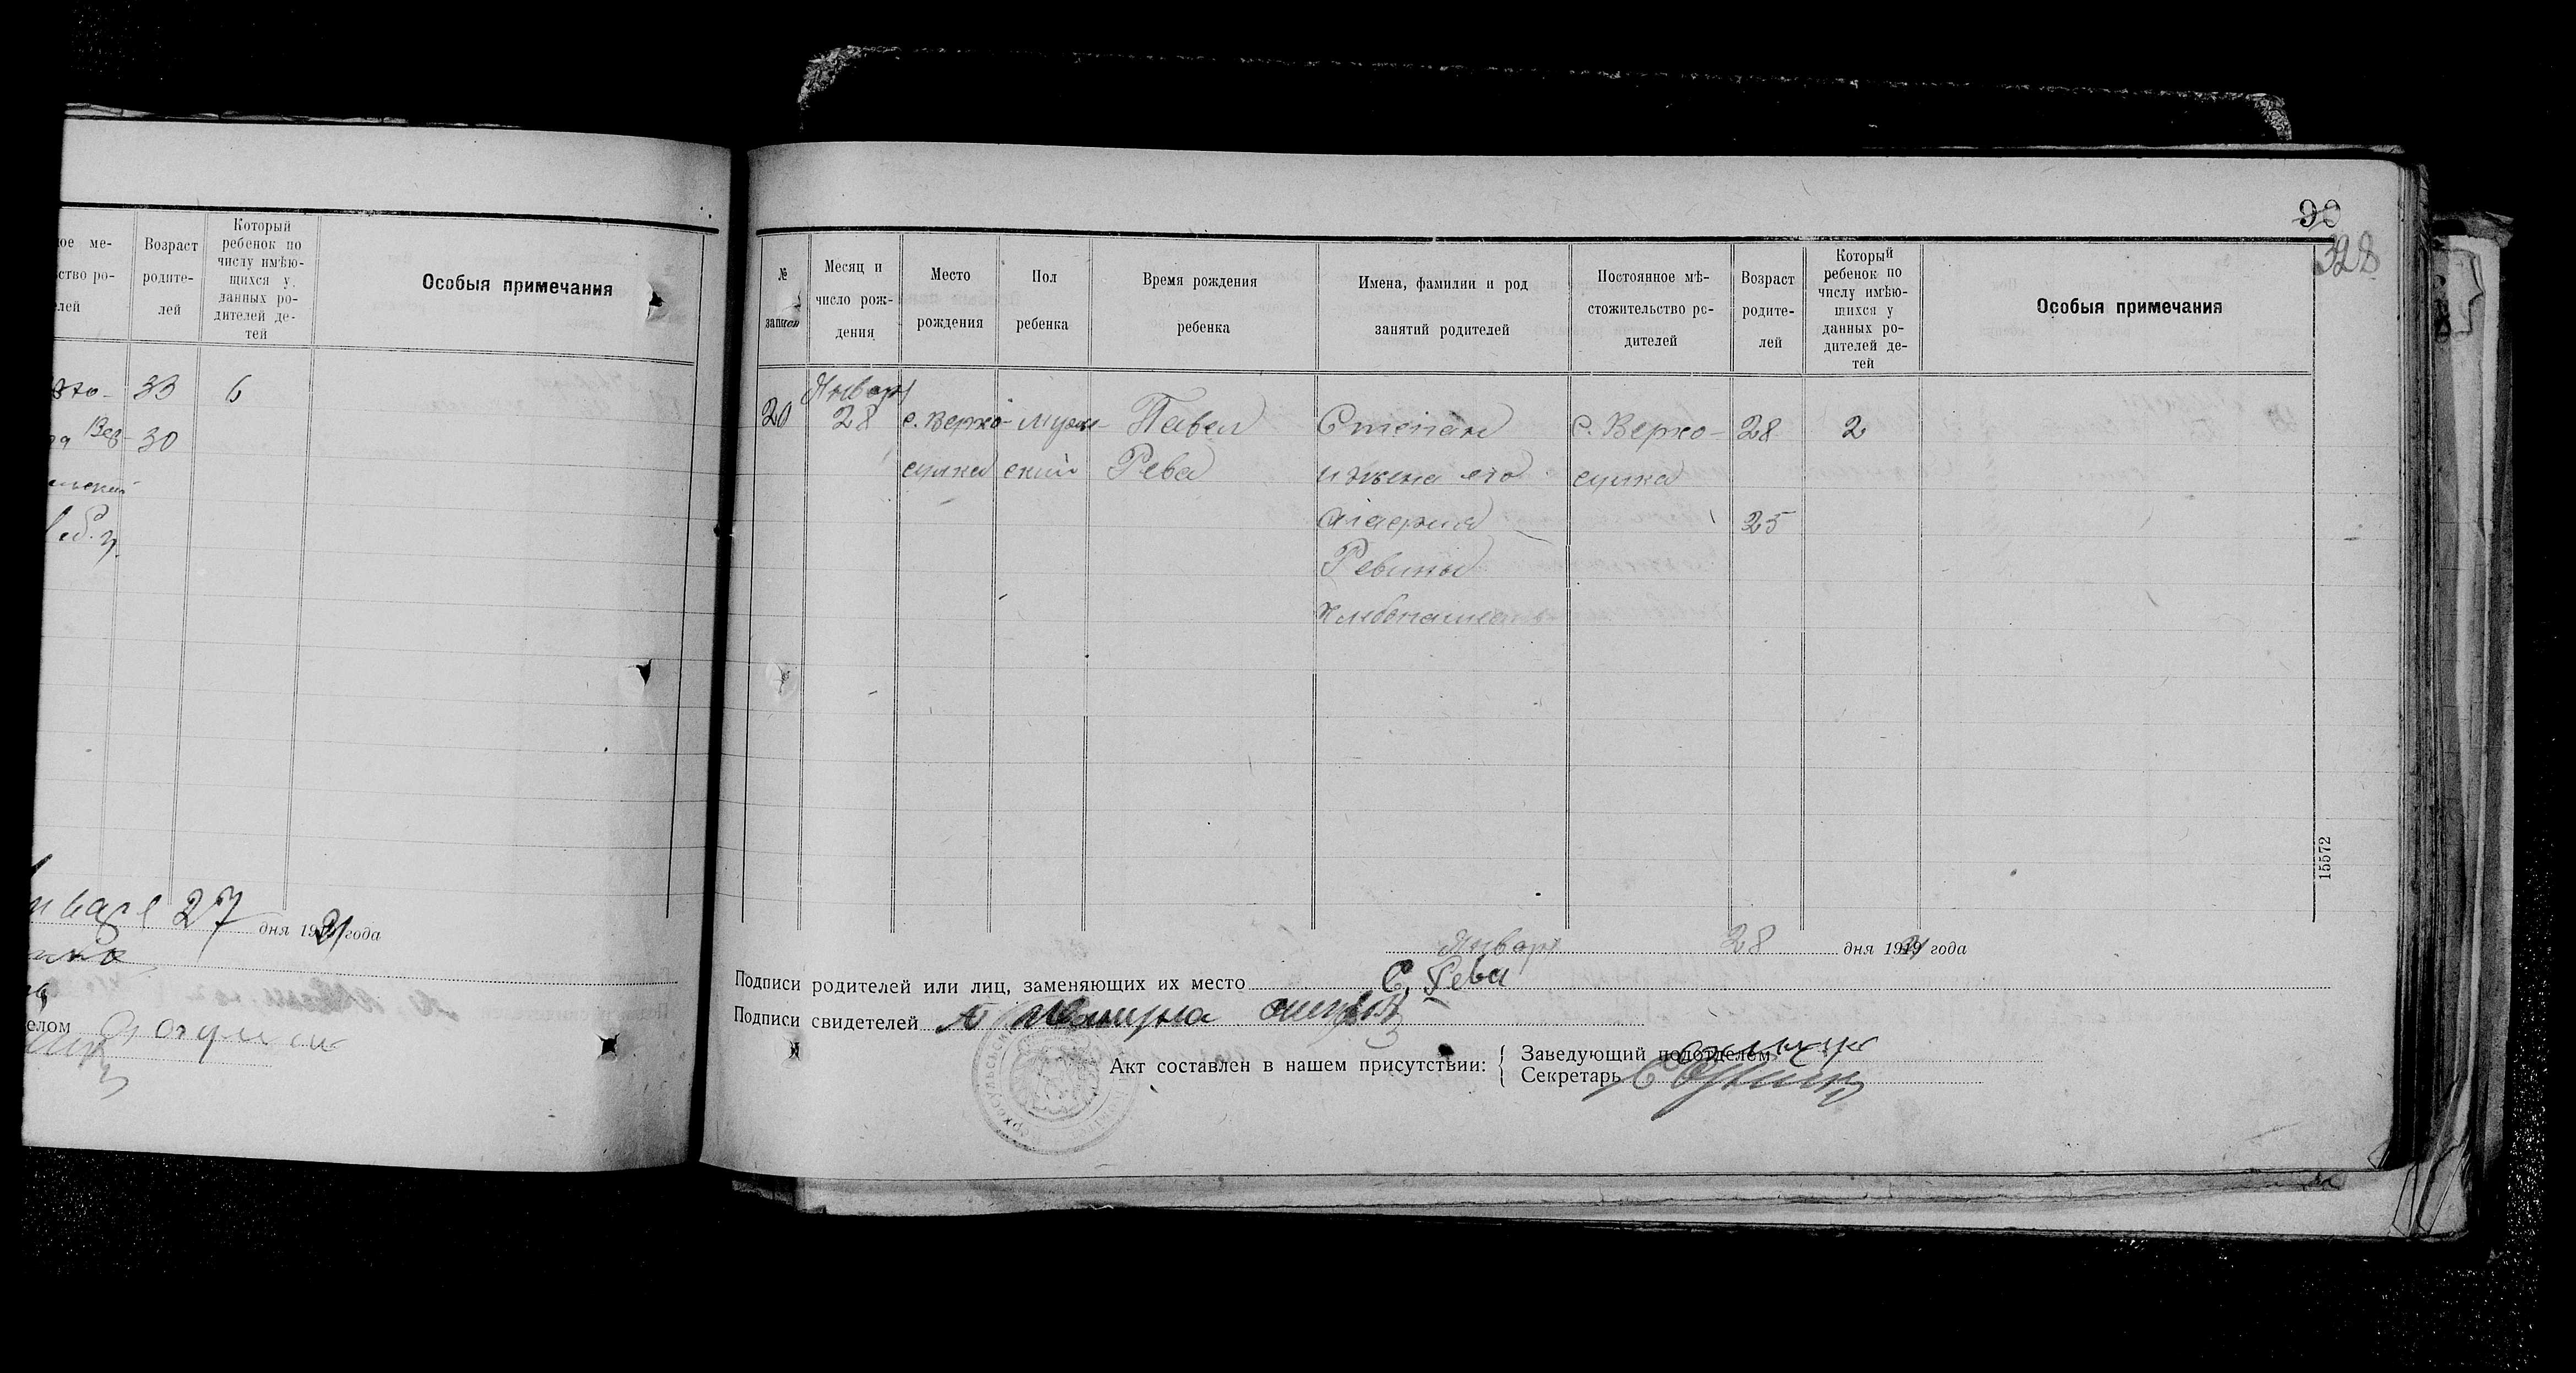 ое ме-
ство ро-
лей
Возраст
родите-
лей
Который
ребенок по
числу имѣю-
щихся у
данных ро-
дителей де-
тей
Особыя примечания
33
6
30
27 дня 1921 года
елом
90
328
№
записи
Месяц и
число рож-
дения
Место
рождения
Пол
ребенка
Время рождения
ребенка
Имена, фамилии и род
занятий родителей
Постоянное мѣ-
стожительство ро-
дителей
Возраст
родите-
лей
Который
ребенок по
числу имѣю-
щихся у
данных ро-
дителей де-
тей
Особыя примечания
Январь
20 28 с. Верхо- муж- Павел Степан с. Верхо- 28 2
сулка ский Рева и жена его сулка
25
Ревины
Хлебопашец
15572
Январь 28 дня 1921 года
Подписи родителей или лиц, заменяющих их место С. Рева
Подписи свидетелей
Акт составлен в нашем присутствии:
Заведующий подотделом
Секретарь